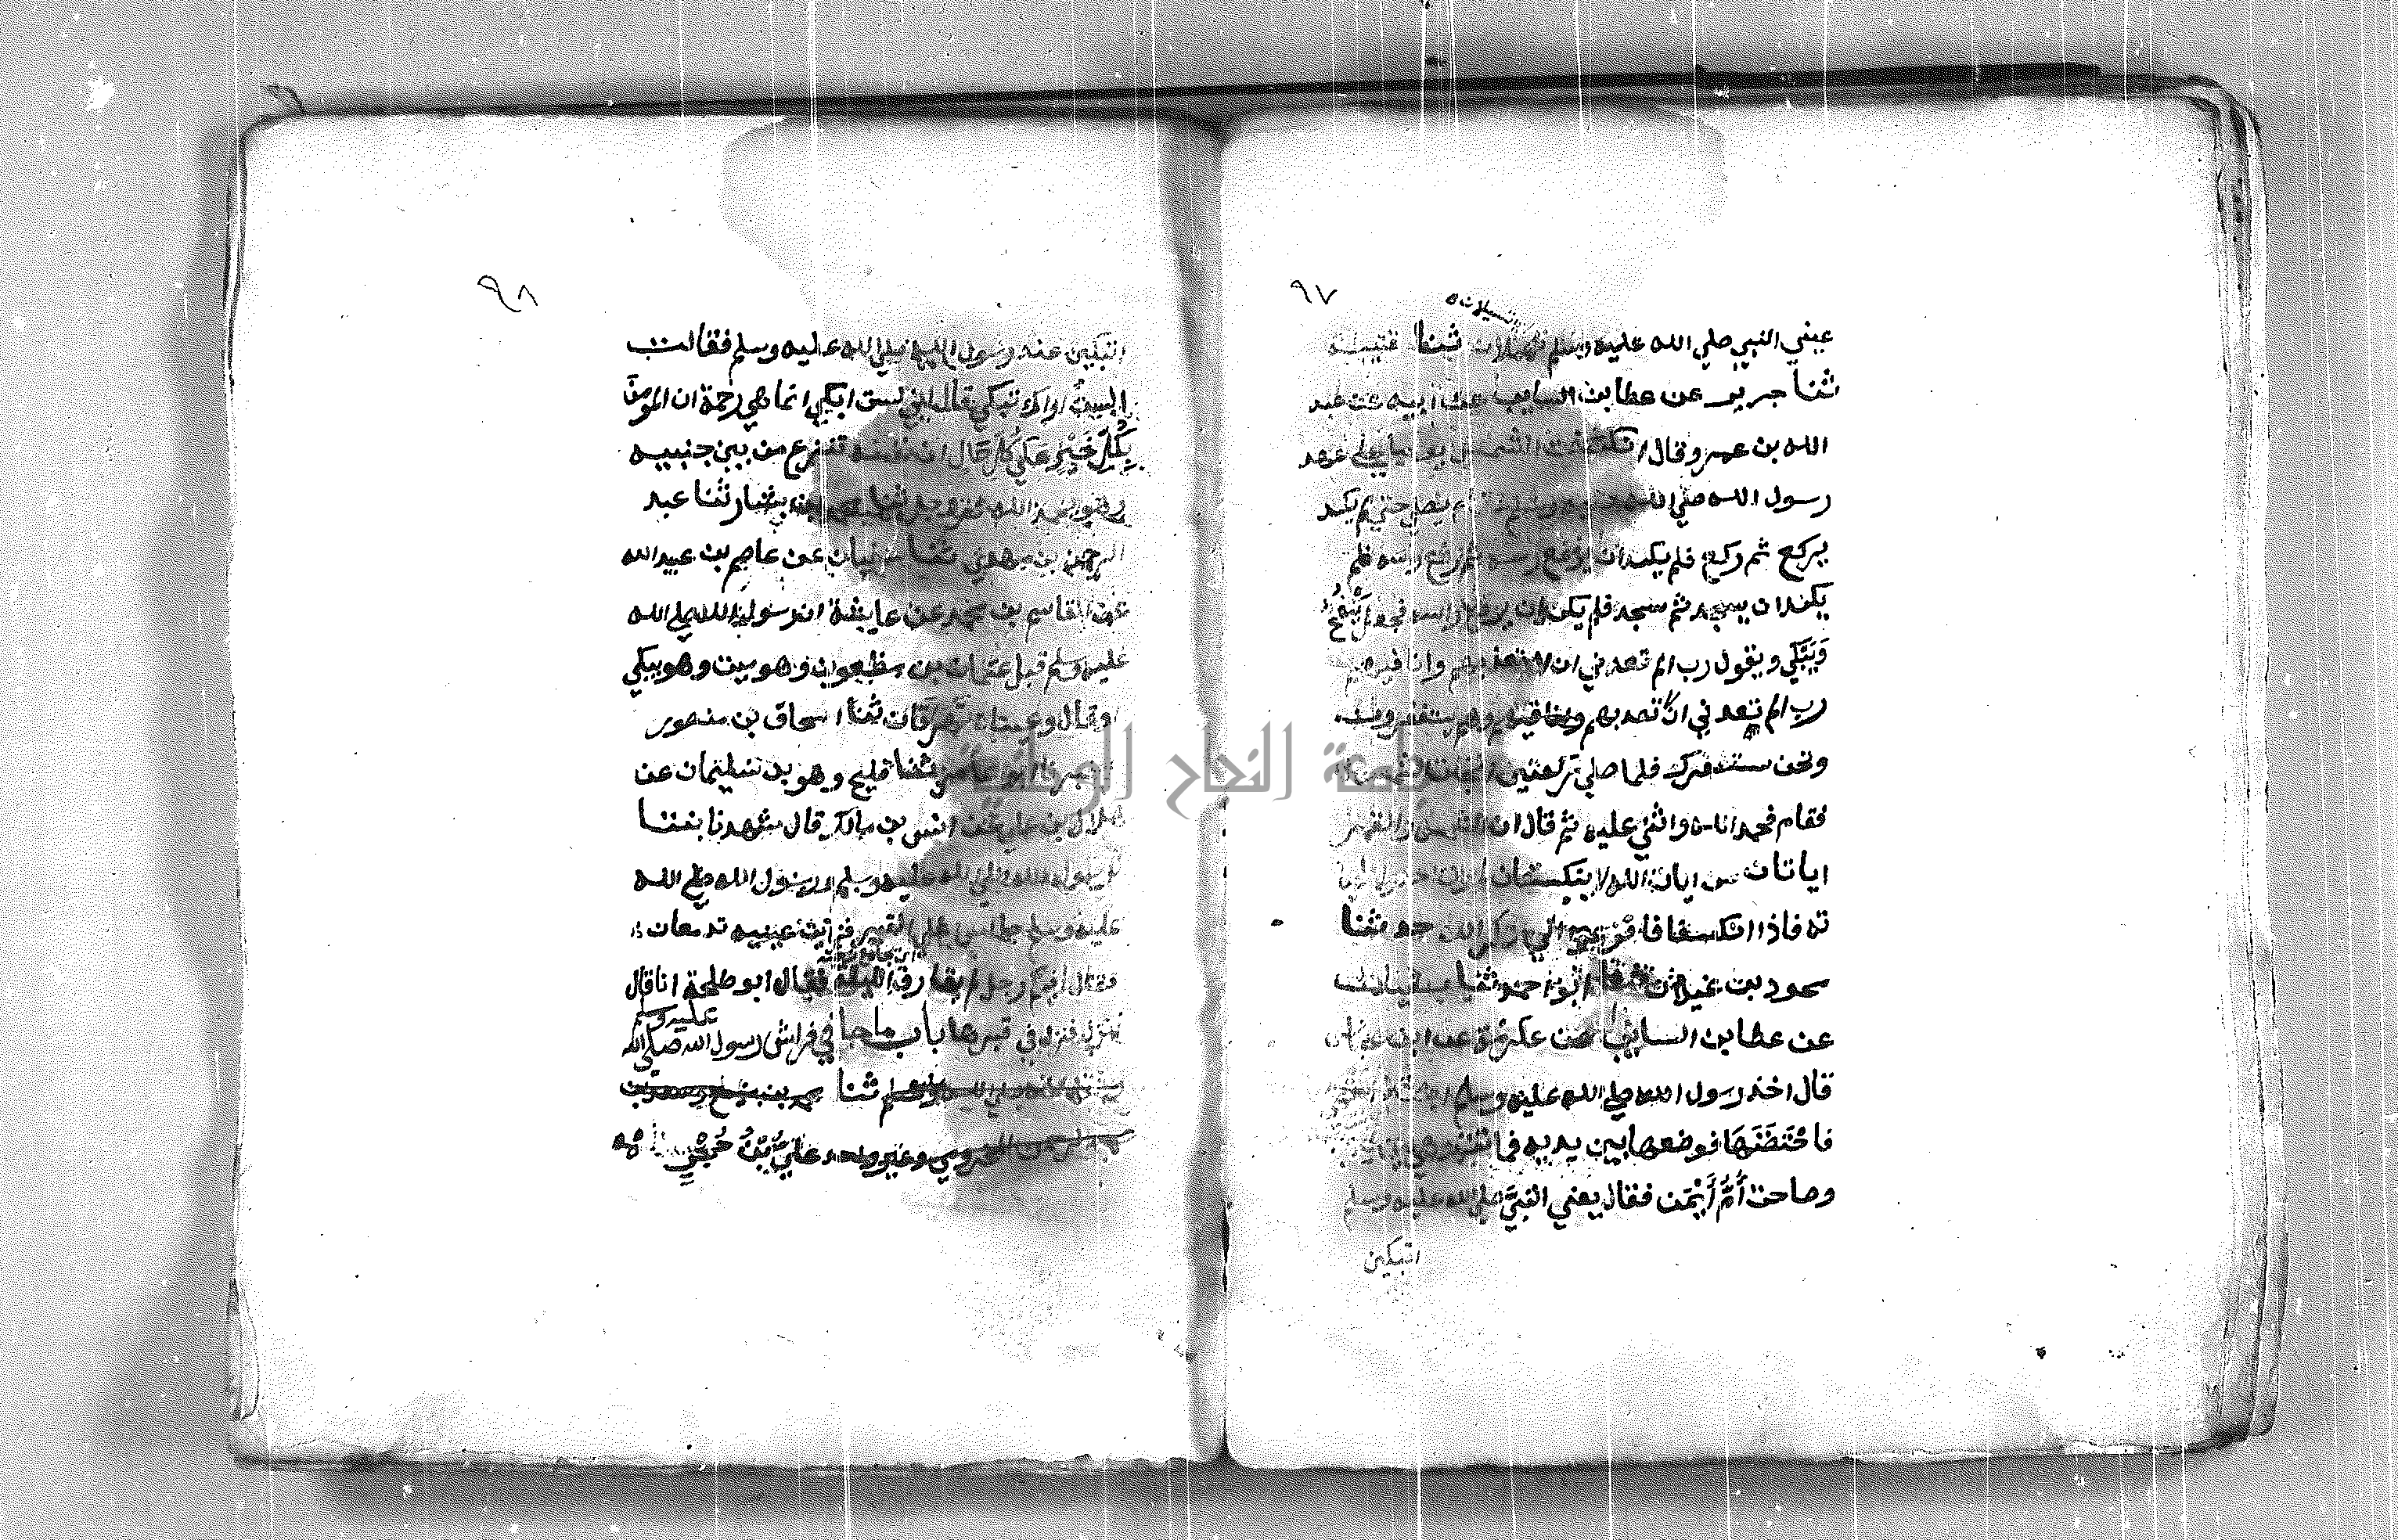 ٩٧
تسيلان
عيني النبي صلي الله عليه وسلم ثنا قتيبة
ثنا جرير عن عطا بن السايب عن ابيه عن عبد
الله بن عمرو قال انكسفت الشمس يوما علي عهد
رسول الله صلي الله عليه وسلم يصلي حتي لم يكد
يركع ثم ركع فلم يكد ان يرفع رسه ثم رفع رسه فلم
يكد ان يسجد ثم سجد فلم يكد ان يرفع راسه فجعل ينفخ
ويبكي ويقول رب الم تعدني ان لا تعذبهم وانا فيهم
رب الم تعدني ان لا تعذبهم وهم يستغفرون
ونحن نستغفرك فلما صلي ركعتين انجلت الشمس
فقام فحمد الله واثني عليه ثم قال ان الشمس والقمر
ايتان من ايات الله لا ينكسفان
فاذا انكسفا فافزعوا الي ذكر الله حد ثنا
محمود بن غيلان ثنا ابو احمد ثنا سفيان
عن عطا بن السايب عن عكرمة عن ابن عباس
قال اخذ رسول الله صلي الله عليه وسلم ابنة
فاحْتَضَنَهَا فوضعها بين يديه فماتت وهي
وصاحت أُمُّ أَيْمَن فقال يعني النبيَّ صلي الله عليه وسلم
اتبكين
٩٨
اتبكين عند رسول الله صلي الله عليه وسلم فقالت
الستُ اراك تبكي قال اني لست ابكي انما هي رحمة ان المؤمن
بِكُلِّ خَيْرٍ عَلَي كُلِّ حَال ان نفسه تنزع من بين جنبيه
وهو يحمد الله عز وجل ثنا محمد بن بشار ثنا عبد
الرحمن بن مهدي ثنا سفيان عن عاصم بن عبيد الله
عن القاسم بن محمد عن عايشة ان رسول الله صلي الله
عليه وسلم قبل عثمان بن مظعون وهو ميت وهو يبكي
او قال وعيناه تهرقان ثنا اسحاق بن منصور
اخبرنا ابو عامر ثنا فليح وهو بن سليمان عن
هلال بن علي عن انس بن مالك قال شهدنا بنتا
لرسول الله صلي الله عليه وسلم ورسول الله صلي الله
عليه وسلم جالس علي القبر فرايت عينيه تدمعان
فقال افيكم رجل لم يقارف الليلة فقال ابو طلحة انا قال
انزل فنزل في قبرها باب ما جا في فراش رسول الله صلي الله
عليه وسلم
ثنا
علي بْنُ حُجْرٍ